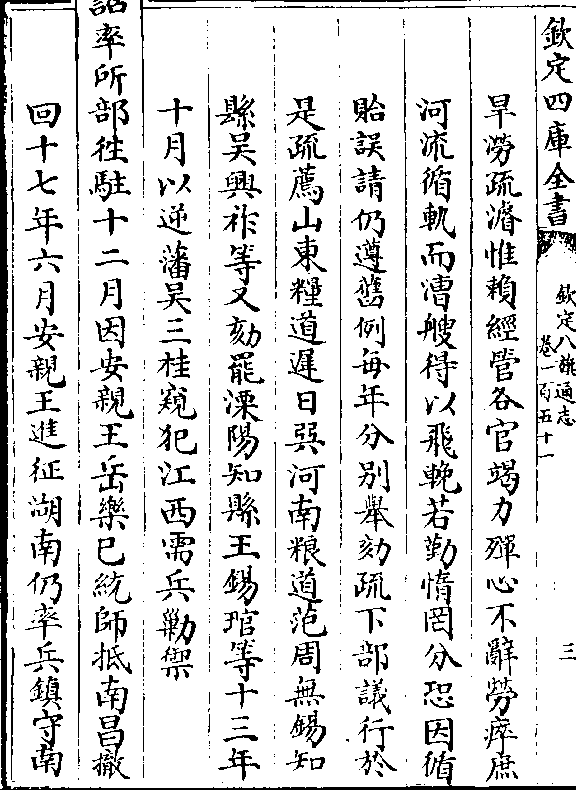 欽定四庫全書
欽定八旗通志
卷一百五十一
三
旱澇疏濬惟賴經管各官竭力殫心不辭勞瘁庶
河流循軌而漕艘得以飛輓若勤惰罔分恐因循
貽誤請仍遵舊例每年分别舉劾疏下部議行於
是疏薦山東糧道遲日巽河南粮道范周無錫知
縣吳興祚等又劾罷溧陽知縣王錫琯等十三年
十月以逆藩吳三桂窺犯江西需兵勦禦
詔率所部徃駐十二月因安親王岳樂已統師抵南昌撤
回十七年六月安親王進征湖南仍率兵鎮守南